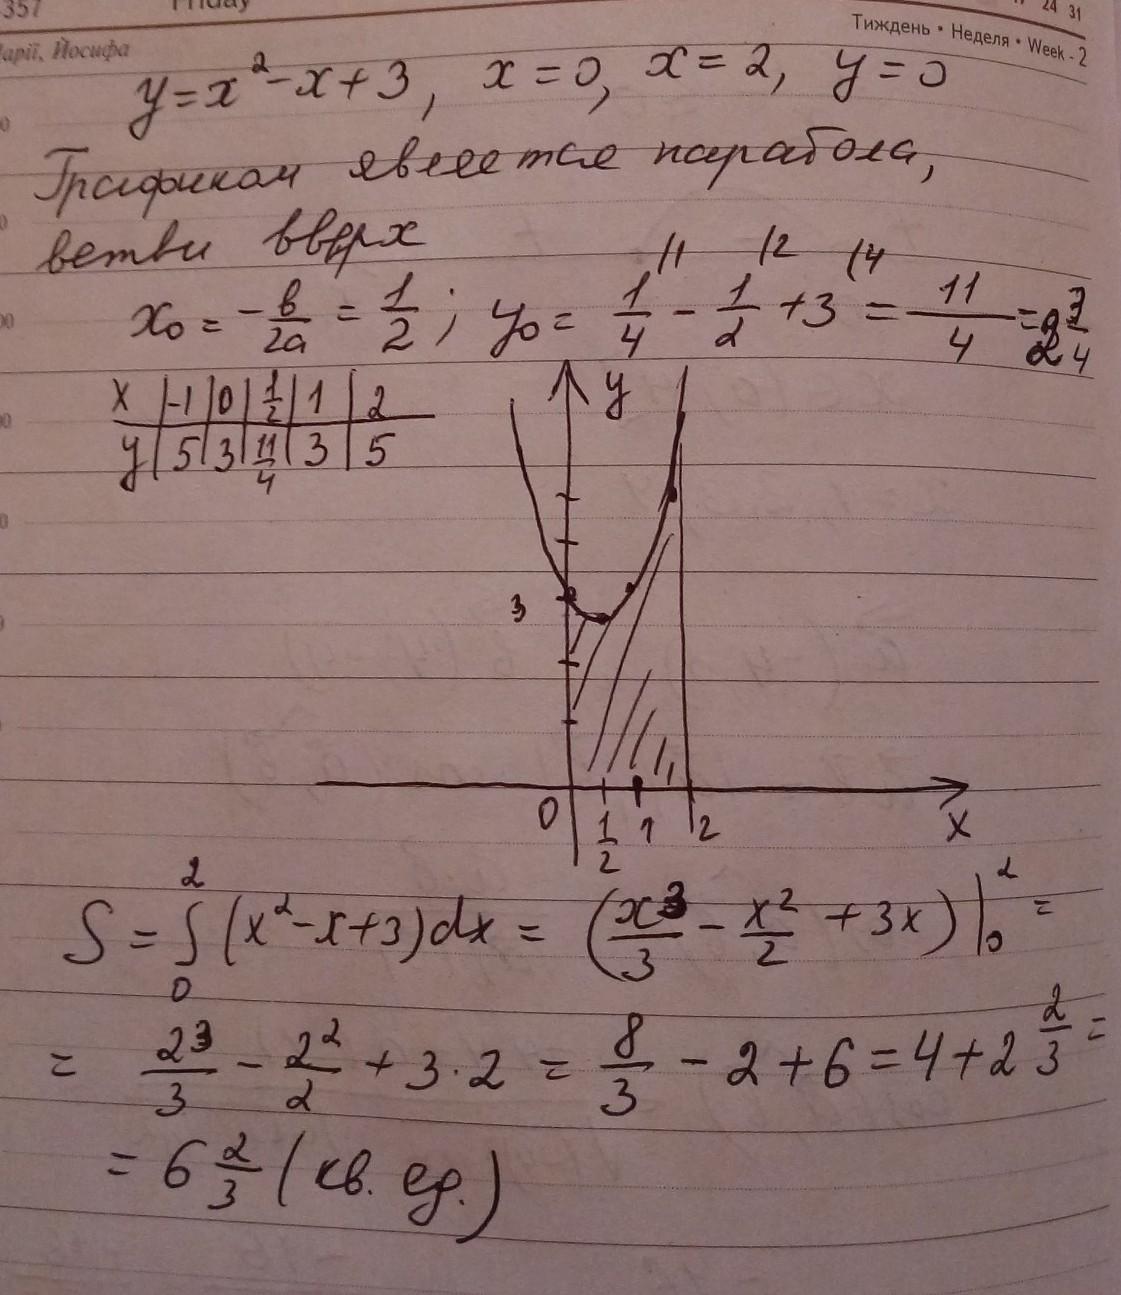 357 Friday 24 31
Тиждень • Неделя • Week - 2
арії, Йосифа
y = x² - x + 3, x = 0, x = 2, y = 0
Графиком является парабола,
ветви вверх
x₀ = -b/2a = 1/2; y₀ = 1/4 /1 - 1/2 /2 + 3 /4 = 11/4 = 2 3/4
x | -1 | 0 | 1/2 | 1 | 2
y | 5 | 3 | 11/4 | 3 | 5
y
3
0 1/2 1 2 x
S = ∫₀² (x² - x + 3) dx = (x³/3 - x²/2 + 3x) |₀² =
= 2³/3 - 2²/2 + 3 · 2 = 8/3 - 2 + 6 = 4 + 2 2/3 =
= 6 2/3 (кв. ед.)